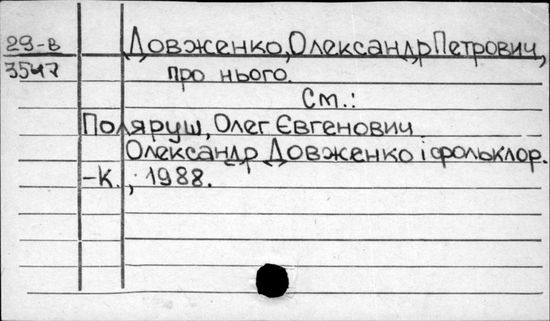 29-в Довженко, Олександр Петрович,
3547 про нього.
См.:
Поляруш, Олег Євгенович
Олександр Довженко і фольклор.
-К., 1988.